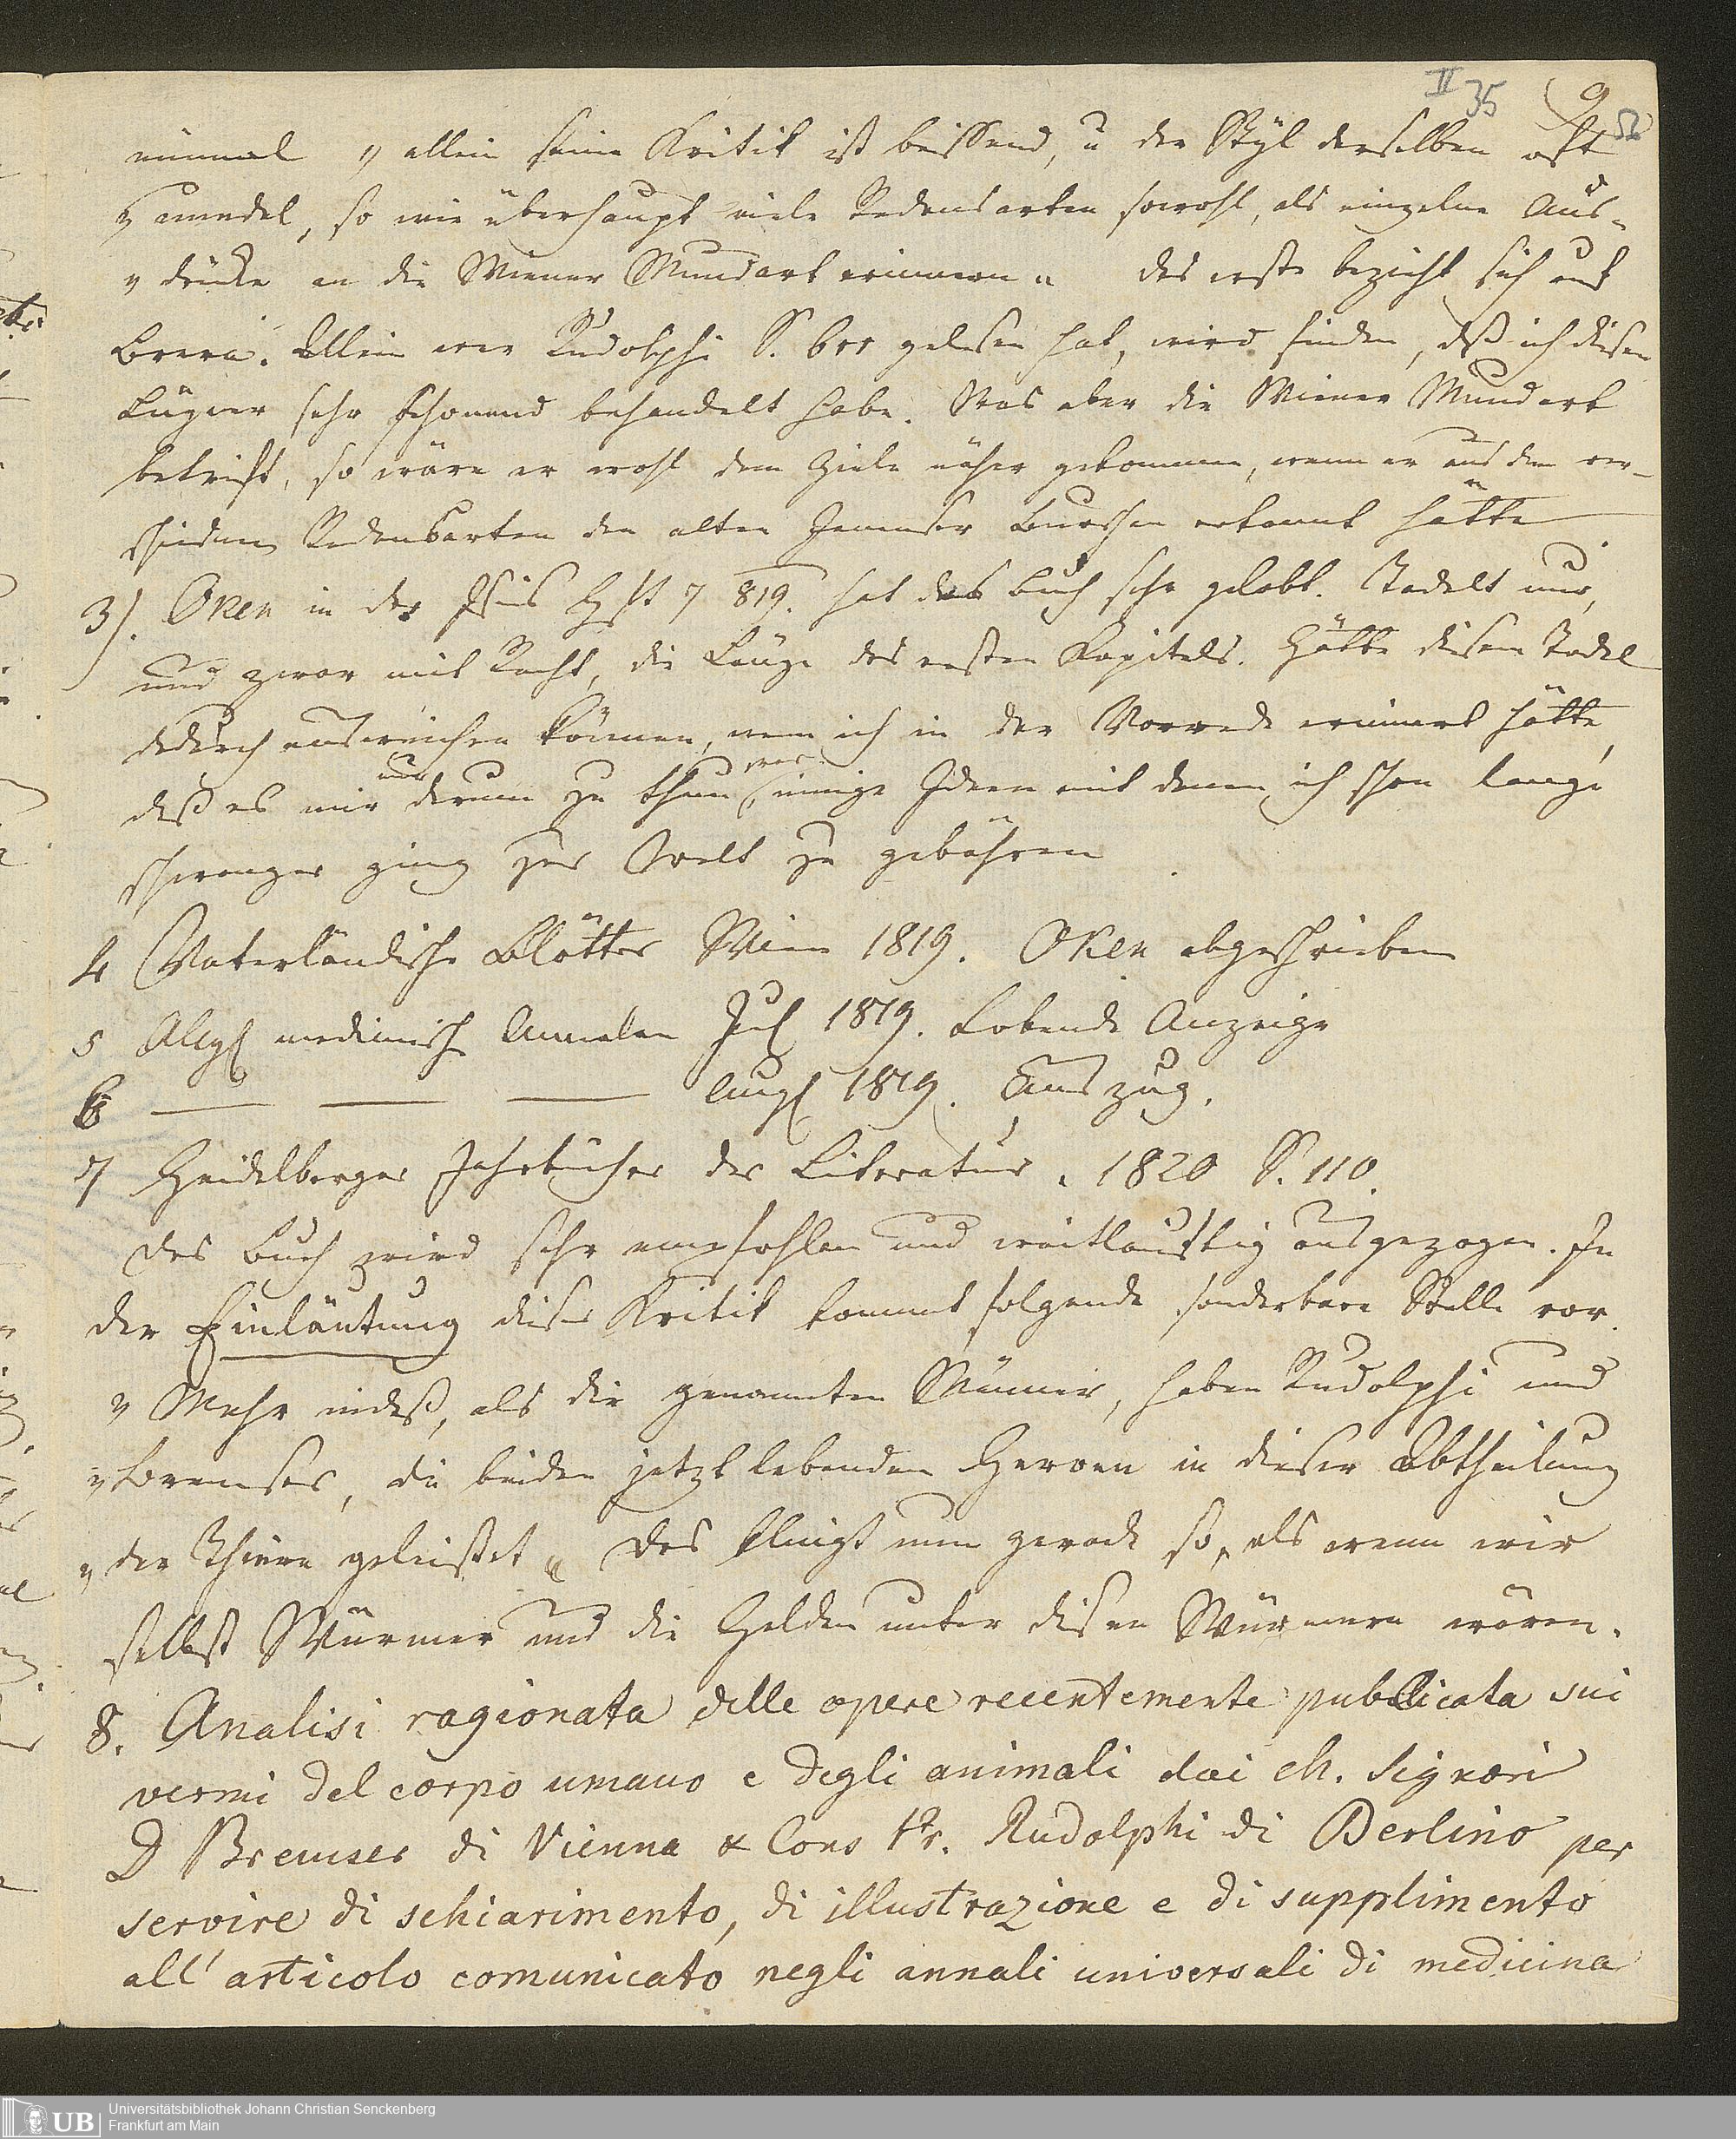 II 35 9
einmal „ allein seine Kritik ist beissend, u der Styl derselben oft
„ unedel, so wie überhaupt viele Redensarten sowohl, als einzelne Aus-
„ drücke an die Wiener Mundart erinnern “ das erste bezieht sich auf
Brera. Allein wer Rudolphi S. gelesen hat, wird finden, daß ich diesen
Lügner sehr schonend behandelt habe. Was aber die Wiener Mundart
betrift, so wäre er wohl dem Ziele näher gekommen, wenn er aus den ver-
schiednen Redensarten den alten Jenenser Burschen erkannt hätte
3). Oken in der Isis Hft 7 819. hat das Buch sehr gelobt. Tadelt nur,
und zwar mit Recht, die Länge des ersten Kapitels. Hätte diesem Tadel
dadurch ausweichen können, wenn ich in der Vorrede erinnert hätte,
daß es mir nur darum zu thun war, einige Ideen mit denen ich schon lange
schwanger ging zur Welt zu gebähren
4 Vaterländische Blätter Wien 1819. Oken abgeschrieben
5 Allg medicinische Annalen Jul 1819. Lobende Anzeige
6 — — — Aug 1819. Auszug.
7 Heidelberger Jahrbücher der Literatur. 1820 S. 110.
Das Buch wird sehr empfohlen und weitläuftig ausgezogen. In
der Einläutung dieser Kritik kommt folgende sonderbare Stelle vor.
„ Mehr indeß, als die genannten Männer, haben Rudolphi und
„ Bremser, die beiden jetzt lebenden Heroen in dieser Abtheilung
„ der Thiere geleistet “ Das klingt nun gerade so, als wenn wir
selbst Würmer und die Helden unter disen Würmern wären.
8. Analisi ragionata delle opere recentemente publicata sui
vermi del corpo umano e degli animali dai ch. Signori
D Bremser di Vienna & Cons Pr. Rudolphi di Berlino per
servire di schiarimento, di illustrazione e di supplimento
all' articolo comunicato negli annali universali di medicina
UB Universitätsbibliothek Johann Christian Senckenberg
Frankfurt am Main